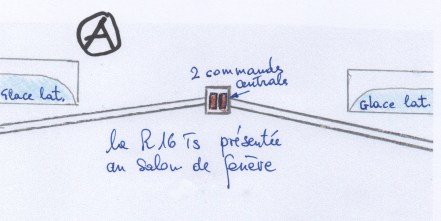 A
2 commande
centrale
Glace lat.
Glace lat.
la R16 Ts présentée
au salon de Genève